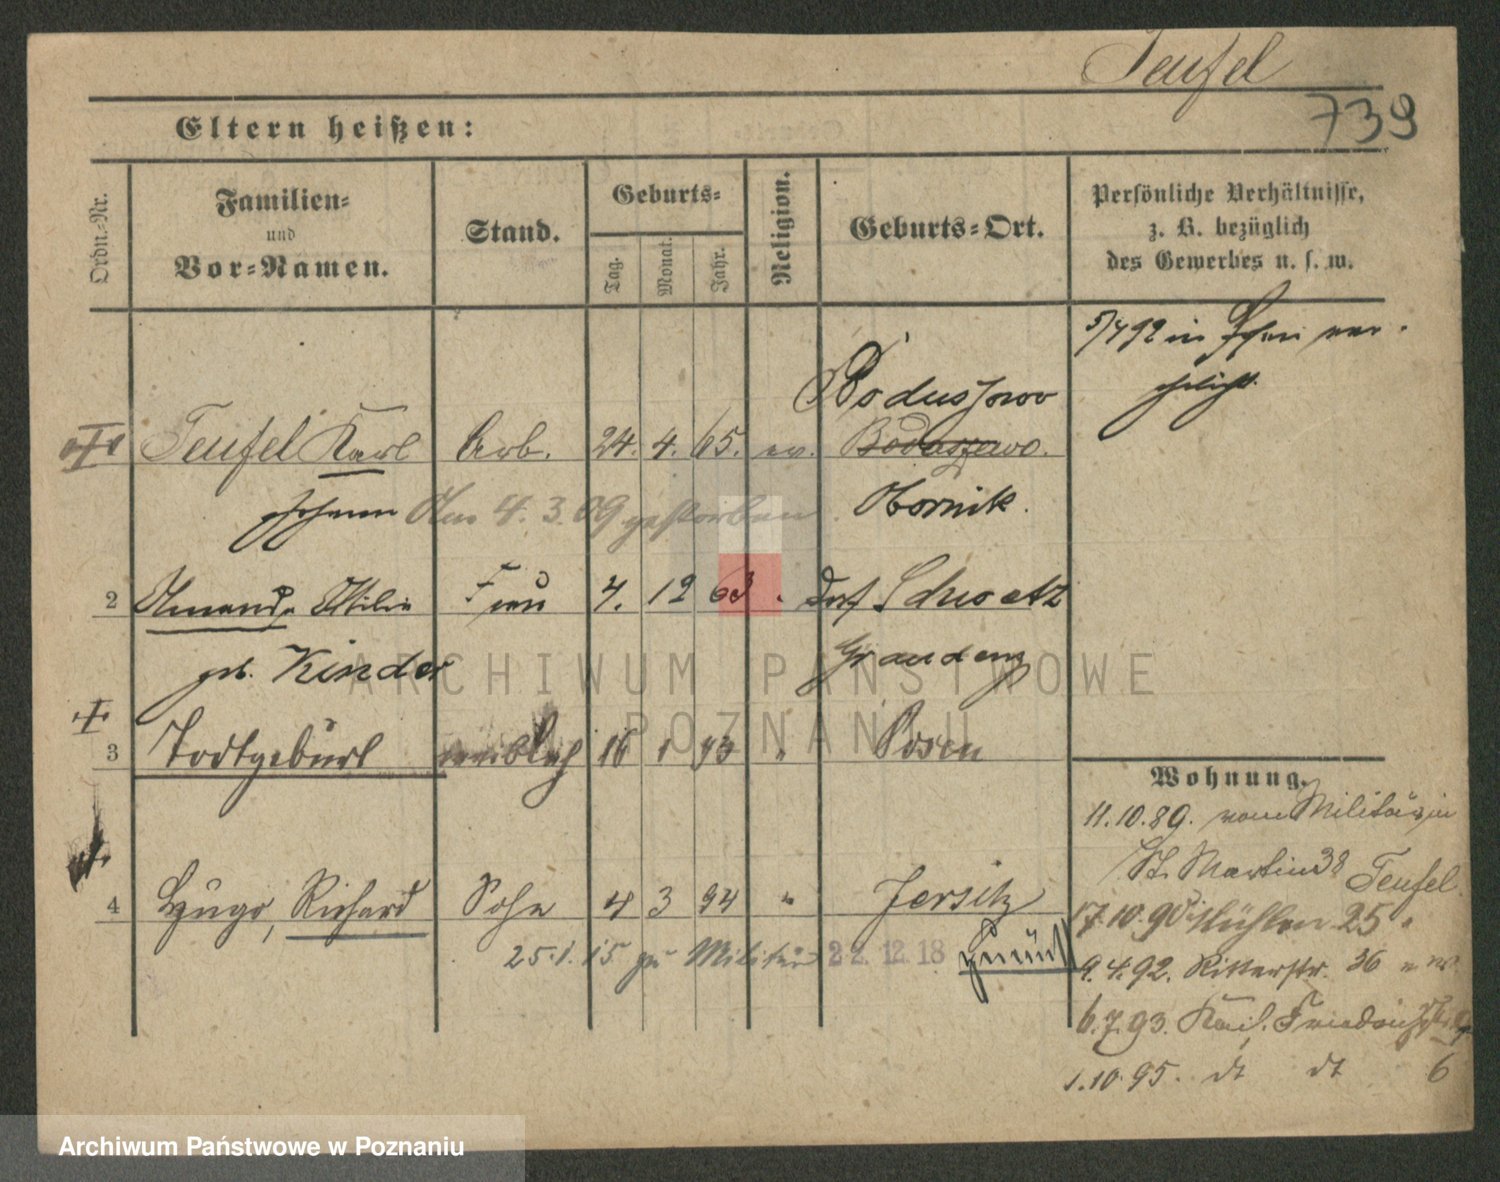 Teufel
739
Eltern heißen:
Ordn.-Nr.
Familien-
und
Vor-Namen.
Stand.
Geburts-
Tag.
Monat.
Jahr.
Religion.
Geburts-Ort.
Persönliche Verhältnisse,
z. B. bezüglich
des Gewerbes u. s. w.
5/4 92 in Posen ver-
ehelicht.
Boduszewo
Teufel Karl Arb. 24. 4. 65. ev. Boduszewo.
Johann Am 4. 3. 09 gestorben. Obornik.
2 Amanda Ottilie Frau 4. 12 63 Dorf Schwetz
geb. Kinder Graudenz
3 Todtgeburt weiblich 16 1 93 " Posen
4 Hugo, Richard Sohn 4 3 94 " Jersitz
25.1.15 zu Militär 22. 12. 18 zurück
Wohnung.
11.10.89. vom Militär in
St. Martin 38 Teufel.
17.10.90 Mühlen 25
9.4.92. Ritterstr. 36
6.7.93. Kais. Friedrichstr.
1.10.95. dt dt 6
ARCHIWUM PAŃSTWOWE
W POZNANIU
Archiwum Państwowe w Poznaniu